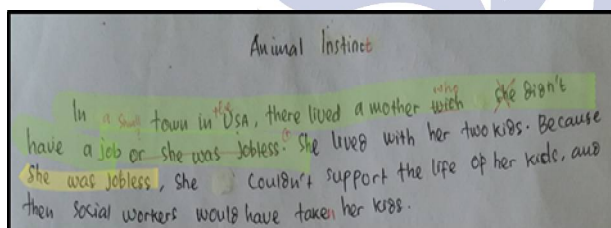 Animal Instinct
In a small town in the USA, there lived a mother who wich she didn't
have a job or she was jobless. She lived with her two kids. Because
She was jobless, she couldn't support the life of her kids, and
then social workers would have taken her kids.